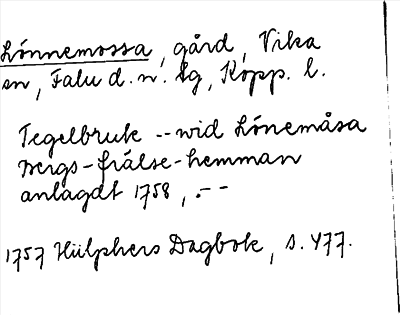 Lönnemossa, gård, Vika
sn, Falu d. n. lg, Kopp. l.
Tegelbruk -- wid Lönemåsa
Bergs-frälse-hemman
anlagdt 1758, .--
1757 Hülphers Dagbok, s. 477.